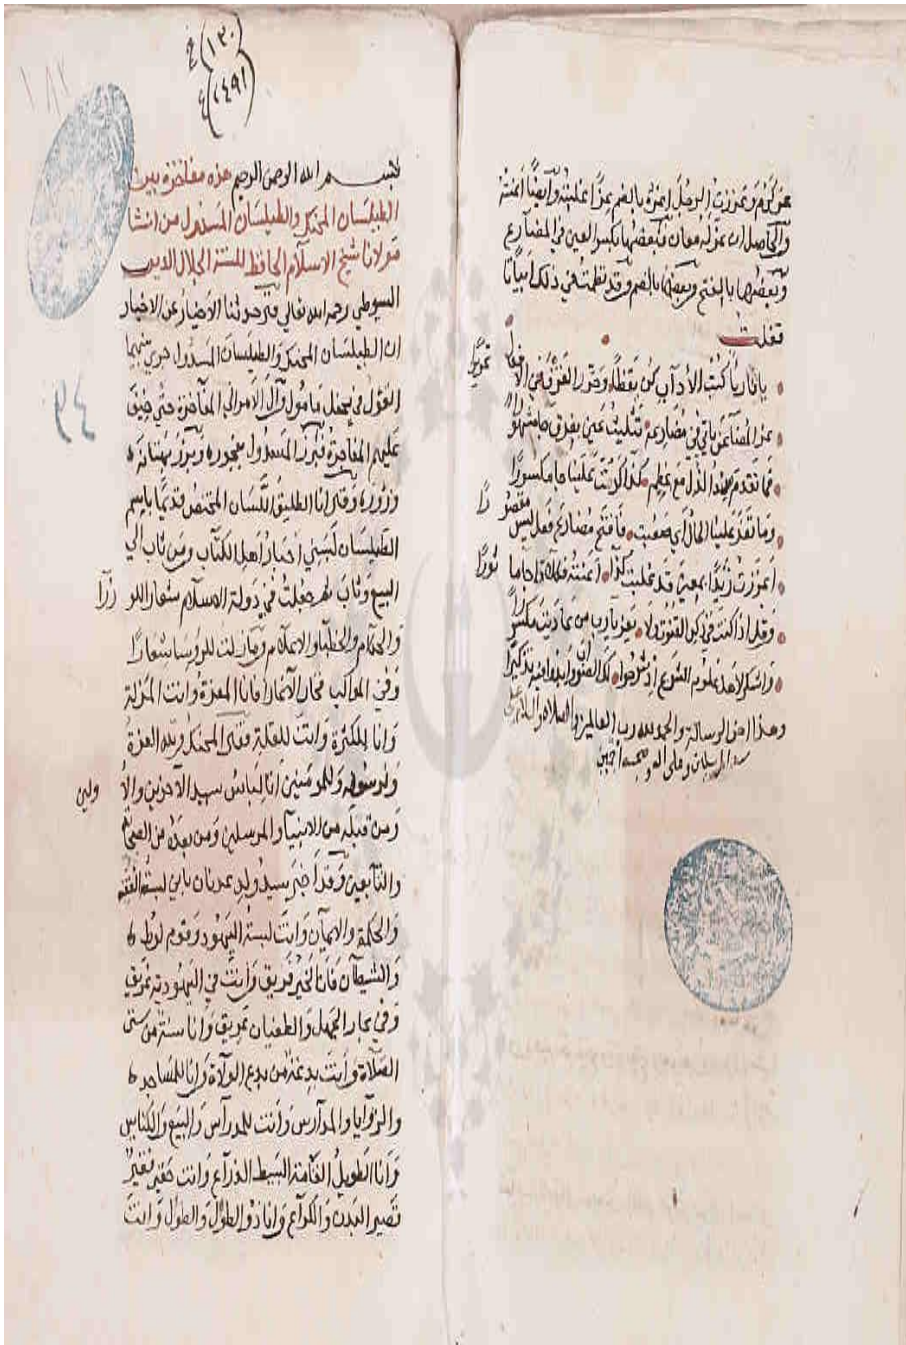 عز لزم وعززت الرجل اعزه بالضم عزا اعليته وايضا اعنته
والحاصل ان عز له معان فبعضها بكسر العين في المضارع
وبعضها بالفتح وبعضها بالضم وقد نظمت في ذلك ابياتا
فقلت
يا قاريا كتب الاداب كن يقظا وحرر الفرق في الافعال تحريرا
عز المضاعف ياتي في مضارعه تثليث عين بفرق جا مشهورا
فما لضد الذل مع عظم كذا كرمت علينا جا مكسورا
وما كعز علينا الحال اي صعبت فافتح مضارعه فعل ليس مقصورا
اعززت زيدا بمعنى قد غلبت كذا اعنته فكلا ذا جا ماثورا
وقل اذا كنت في ذكر القنوت ولا يعز يا رب من عاديت مكسورا
واشكر لاهل علوم الشرع اذ شرحوا لك الصواب وابدوا فيه تذكيرا
وهذا اخر الرسالة والحمد لله رب العالمين والصلاه والسلام على
المرسلين وعلى اله وصحبه اجمعين
(١٣٠)
(٢٤٩١)
١٨٢
بسم الله الرحمن الرحيم هذه مفاخرة بين
الطيلسان المحنك والطيلسان المسدول من انشا
مولانا شيخ الاسلام الحافظ للسنة الجلال الدين
السيوطي رحمه الله تعالى قد حدثنا الاخيار عن الاخبار
ان الطيلسان المحنك والطيلسان المسدول جرى بينهما
القول في محفل مامول وآل الامر الى المفاخرة حتى ضيق
عليهم المفاجرة فبرز المسدول بفجوره وبرز بهتانه
وزوره وقال انا الطليق اللسان المختص قديما باسم
الطيلسان لبسني احبار اهل الكتاب ومن تاب الى
البيع وثاب ثم جعلت في دولة الاسلام شعار الوزرآ
والحكام والخطبا والاعلام وما زلت للروسا شعارا
وفي المواكب فانا المعزة وانت المذلة
وانا للكثرة وانت للقلة فقال المحنك ولله العزة
ولرسوله وللمومنين انا لباس سيد الاخرين والاولين
ومن قبله من الانبيا والمرسلين ومن بعده من الصحابة
والتابعين وقد اخبر سيد ولد عدنان باني لبسة
والحكمة والايمان وانت لبسة اليهود وقوم لوط
والشيطان فانا لخير فريق وانت في اليهودية عريق
وفي بحار الجهل والطغيان غريق وانا سنة من سنن
الصلاة وانت بدعة من بدع الولاة وانا للمساجد
والزوايا والمدارس وانت للمدراس والبيع والكنايس
وانا الطويل القامة البسيط الذراع وانت حقير فقير
قصير البدن والكراع وانا ذو الطول والطول وانت